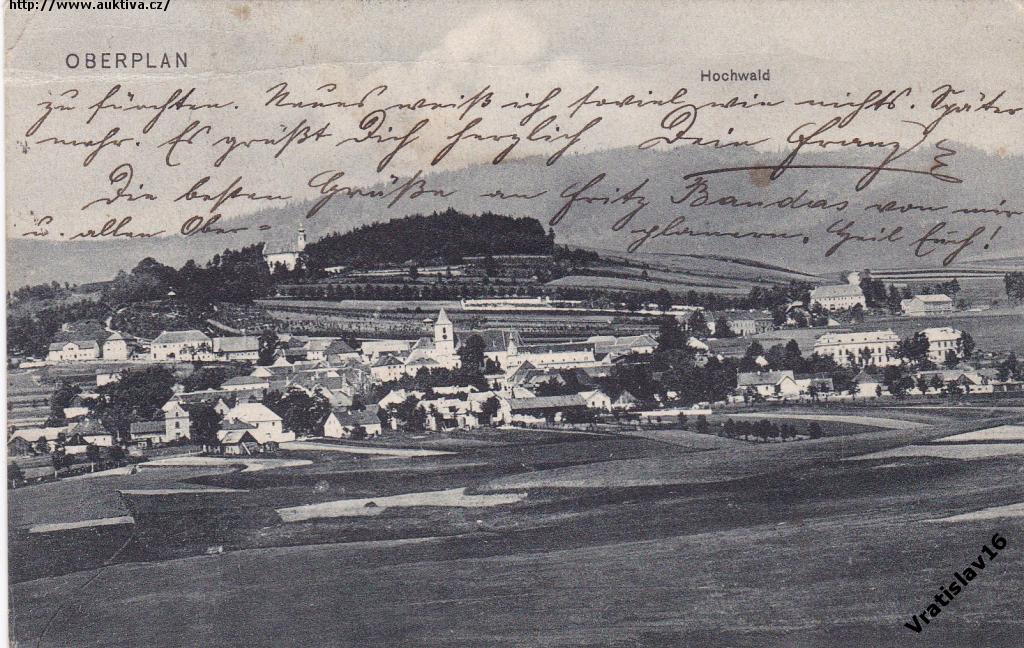 http://www.auktiva.cz/
OBERPLAN
Hochwald
zu fürchten. Neues weiß ich soviel wie nichts. Später
mehr. Es grüßt Dich herzlich Dein Franz
Die besten Grüße an Fritz Bandas von mir
u. allen Ober=
plainern. Heil Euch!
Vratislav16